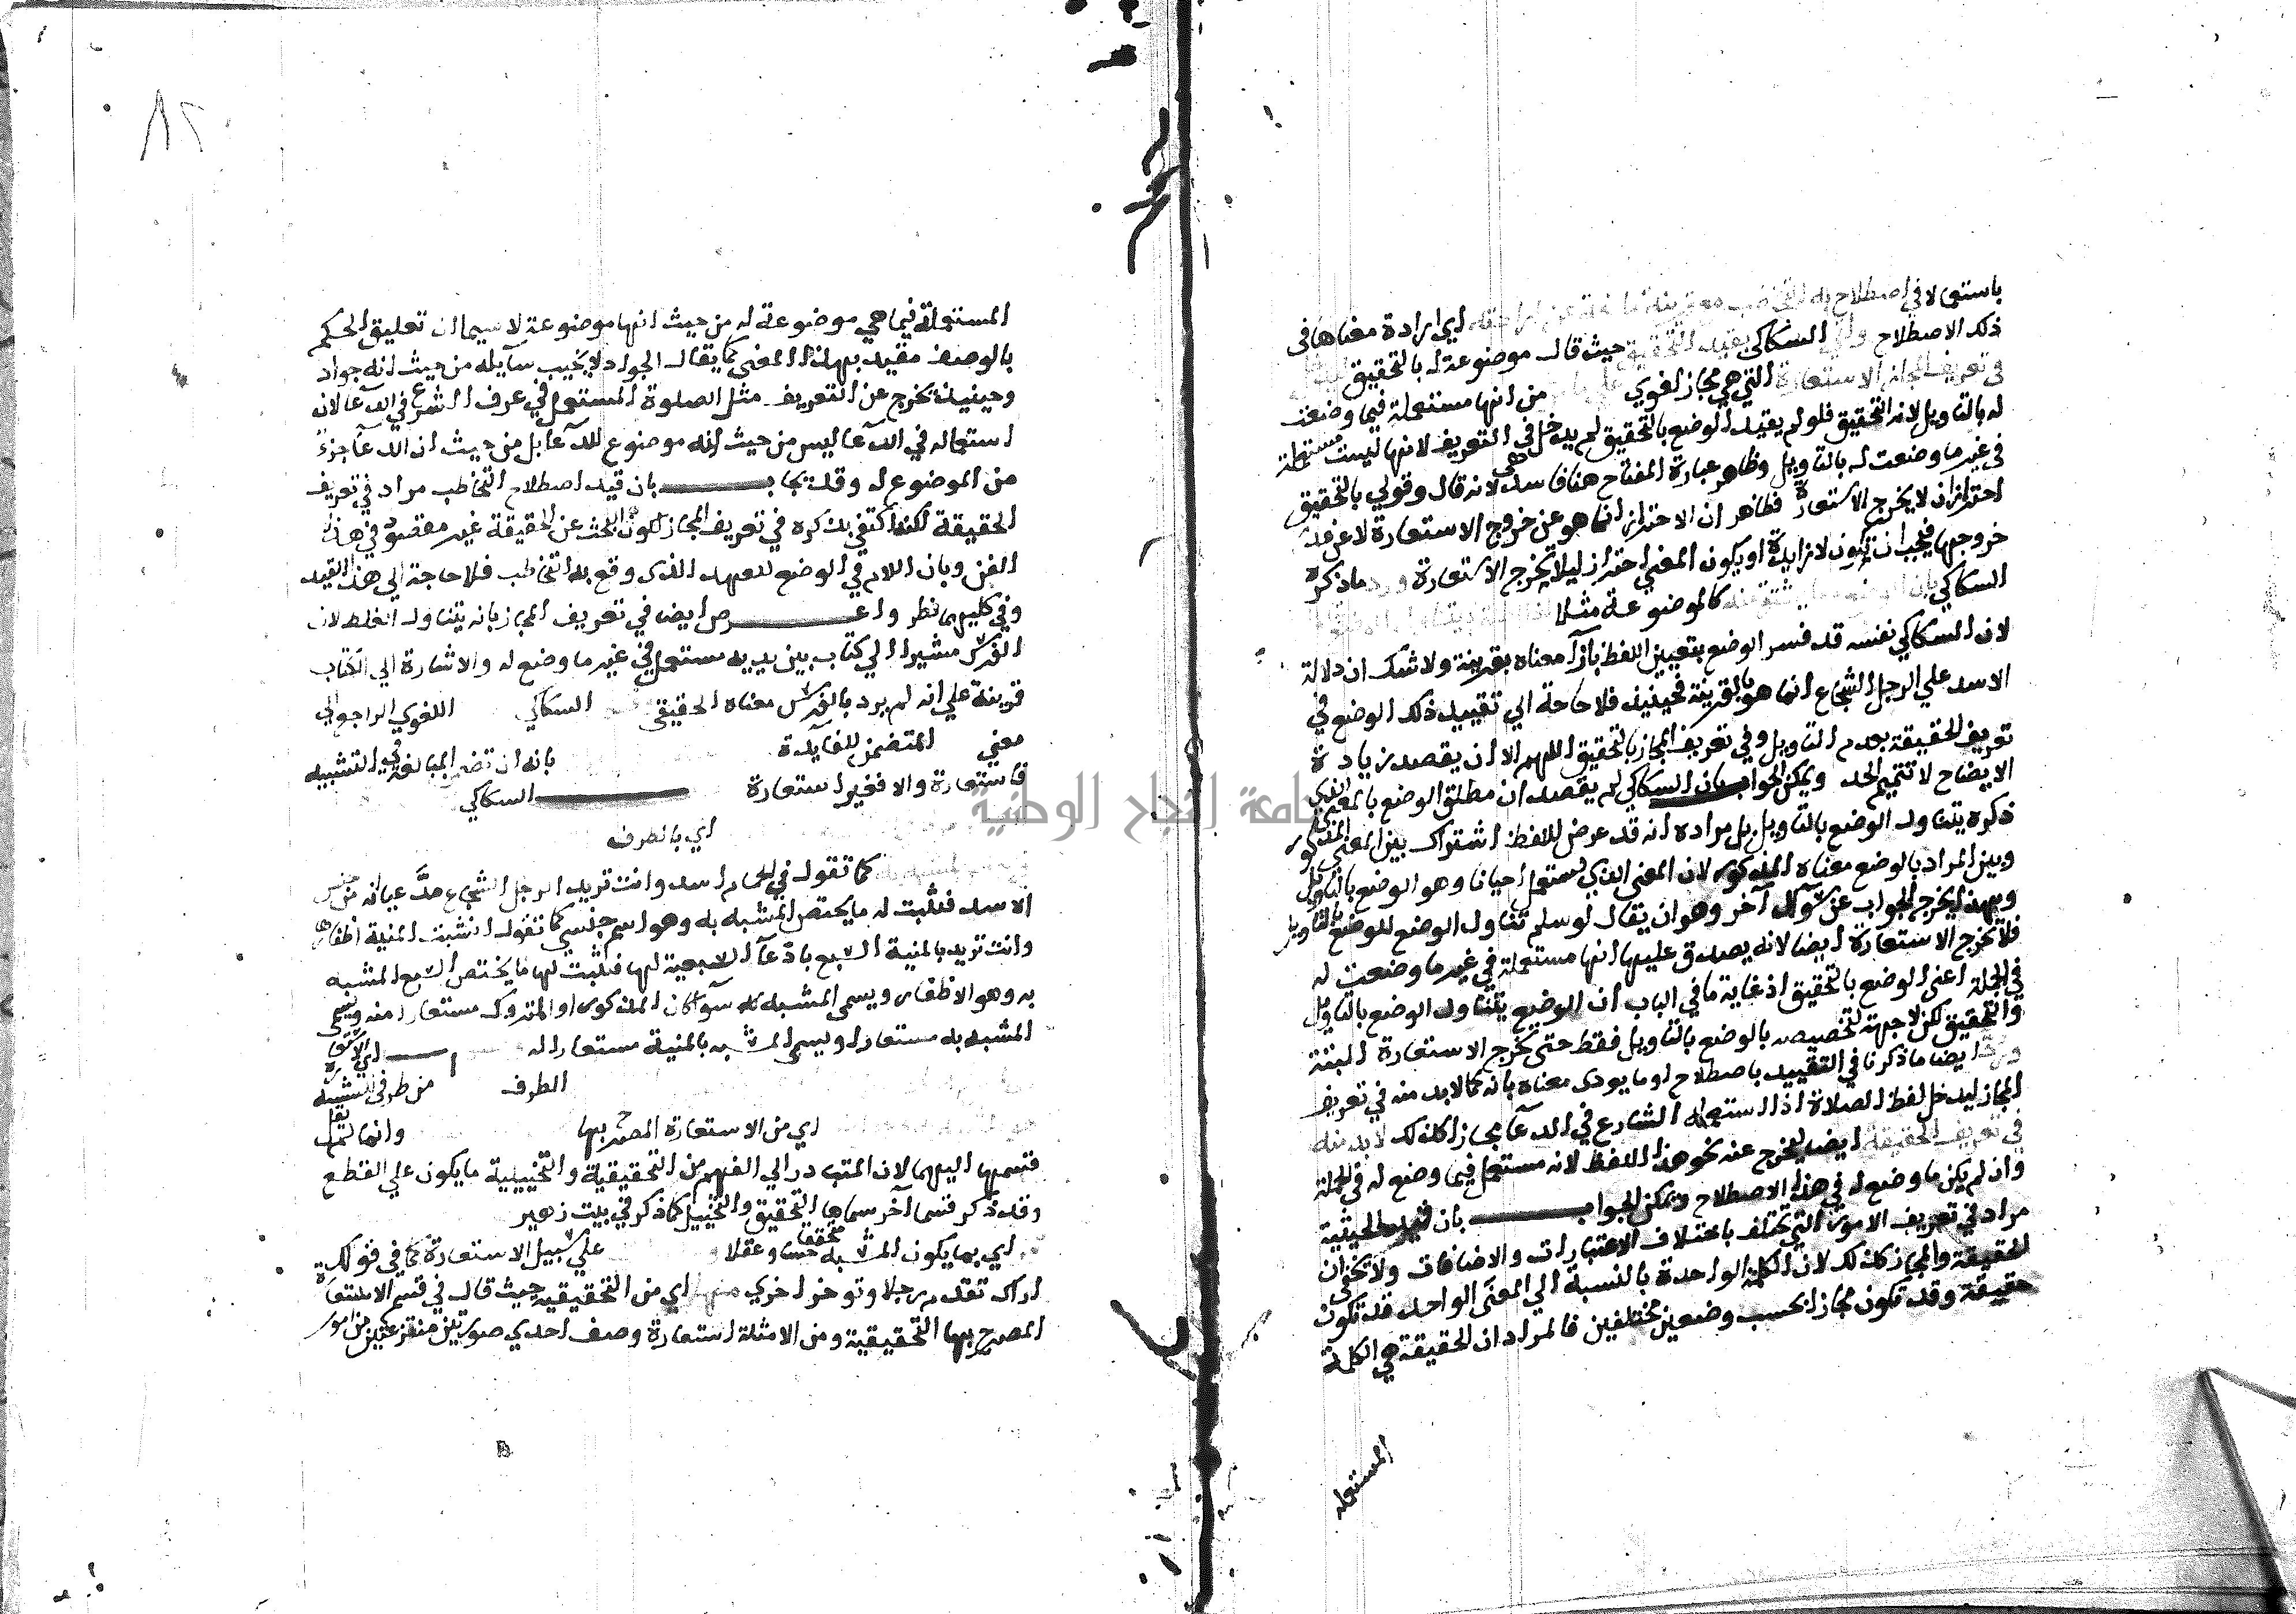 باستعمالا في اصطلاح به التخاطب مع قرينة مانعة عن ارادته اي ارادة معناها في
ذلك الاصطلاح واتي السكاكي بقيد التحقيق حيث قال موضوعة له بالتحقيق
في تعريف المجاز الاستعارة التي هي مجاز لغوي من انها مستعملة فيما وضعت
له بالتاويل لانه التحقيق فلو لم يقيد الوضع بالتحقيق لم يدخل هي في التعريف لانها ليست مستعملة
في غير ما وضعت له بالتاويل وظاهر عبارة المفتاح هنا فاسد لانه قال وقولي بالتحقيق
احتراز ان لا يخرج الاستعارة فظاهر ان الاحتراز انما هو عن خروج الاستعارة لا عن عدم
خروجها فيجب ان تكون لا زايدة او يكون المعني احتراز ليلا يخرج الاستعارة ورد ما ذكره
السكاكي بان الوضع وما يشتق منه كالموضوعة مثلا
لان السكاكي نفسه قد فسر الوضع بتعيين اللفظ بازآ معناه بقرينة ولا شك ان دلالة
الاسد علي الرجل الشجاع انما هو بالقرينة فحينيذ فلا حاجة الي تقييد ذلك الوضع في
تعريف الحقيقة بعدم التاويل وفي تعريف المجاز بالتحقيق اللهم الا ان يقصد زيادة
الايضاح لا تتميم الحد ويمكن الجواب بان السكاكي لم يقصد ان مطلق الوضع بالمعني الذي
ذكره يتناول الوضع بالتاويل بل مراده انه قد عرض للفظ اشتراك بين المعني المذكور
وبين المراد بالوضع معناه المذكور لان المعني الذي يستعمل احيانا وهو الوضع بالتاويل
وبهذا يخرج الجواب عن سوال آخر وهو ان يقال لو سلم تناول الوضع للوضع بالتاويل
فلا تخرج الاستعارة ايضا لانه يصدق عليها انها مستعملة في غير ما وضعت له
في الجملة اعني الوضع بالتحقيق اذ غاية ما في الباب ان الوضع يتناول الوضع بالتاويل
والتحقيق لكن لا جهة لتخصيصه بالوضع بالتاويل فقط حتي تخرج الاستعارة البتة
ورد ايضا ما ذكرنا في التقييد باصطلاح او ما يودي معناه بانه كما لابد منه في تعريف
المجاز ليدخل لفظ الصلاة اذا استعمله الشارع في الدعآ مجازا كذلك لابد منه
في تعريف الحقيقة ايضا ليخرج عنه نحو هذا اللفظ لانه مستعمل فيما وضع له في الجملة
وان لم يكن ما وضع له في هذا الاصطلاح ويمكن الجواب بان قيد الحيثية
مراد في تعريف الامور التي تختلف باختلاف الاعتبارات والاضافات ولا يخفي ان
الحقيقة والمجاز كذلك لان الكلمة الواحدة بالنسبة الي المعني الواحد قد تكون
حقيقة وقد تكون مجازا بحسب وضعين مختلفين فالمراد ان الحقيقة هي الكلمة
المستعملة
٨٢
المستعملة فيما هي موضوعة له من حيث انها موضوعة لاسيما ان تعليق الحكم
بالوصف مقيد بهذا المعني كما يقال الجواد لا يخيب سآيله من حيث انه جواد
وحينيذ يخرج عن التعريف مثل الصلوة المستعمل في عرف الشرع في الدعآ لان
استعماله في الدعآ ليس من حيث انه موضوع للدعآ بل من حيث ان الدعآ جزء
من الموضوع له وقد يجاب بان قيد اصطلاح التخاطب مراد في تعريف
الحقيقة لكنه اكتفي بذكره في تعريف المجاز لكون البحث عن الحقيقة غير مقصود في هذا
الفن وبان اللام في الوضع للعهد الذي وقع به التخاطب فلا حاجة الي هذا القيد
وفي كليهما نظر واعترض ايضا في تعريف المجاز بانه يتناول الغلط لان
الفرس مشيرا الي كتاب بين يديه مستعمل في غير ما وضع له والاشارة الي الكتاب
قرينة علي انه لم يرد بالفرس معناه الحقيقي السكاكي اللغوي الراجع الي
معني المتضمن للفايدة بانه ان تضمن المبالغة في التشبيه
فاستعارة والا فغير استعارة السكاكي
اي بالطرف
كما تقول في الحمام اسد وانت تريد الرجل الشجاع مدعيا انه من جنس
الاسد فتثبت له ما يختص المشبه به وهو اسم جنس كما تقول انشبت المنية اظفارها
وانت تريد بالمنية السبع بادعآ السبعية لها فتثبت لها ما يختص السبع المشبه
به وهو الاظفار ويسمي المشبه به سوآ كان المذكور او المتروك مستعارا منه ويسمي
المشبه به مستعارا ويسمي المشبه بالمنية مستعارا له اي الاستعارة
الطرف من طرفي التشبيه
اي من الاستعارة المصرح بها وانما لم يقل
قسمها اليهما لان المتبادر الي الفهم من التحقيقية والتخييلية ما يكون علي القطع
وقد ذكر قسما آخر سماها التحقيق والتخييل كما ذكر في بيت زهير
اي بما يكون المشبه محققا حسا وعقلا علي سبيل الاستعارة كما في قولك
اراك تقدم رجلا وتوخر اخري منها اي من التحقيقية حيث قال في قسم الاستعارة
المصرح بها التحقيقية ومن الامثلة استعارة وصف احدي صورتين منتزعتين من امور
جامعة النجاح الوطنية